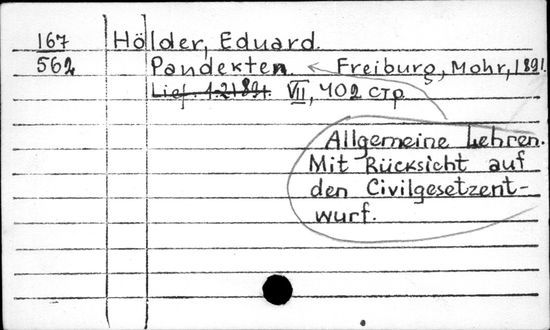 167 Hölder, Eduard.
562 Pandekten. Freiburg, Mohr, 1891.
VII, 402 стр
Allgemeine Lehren.
Mit Rücksicht auf
den Civilgesetzent-
wurf.